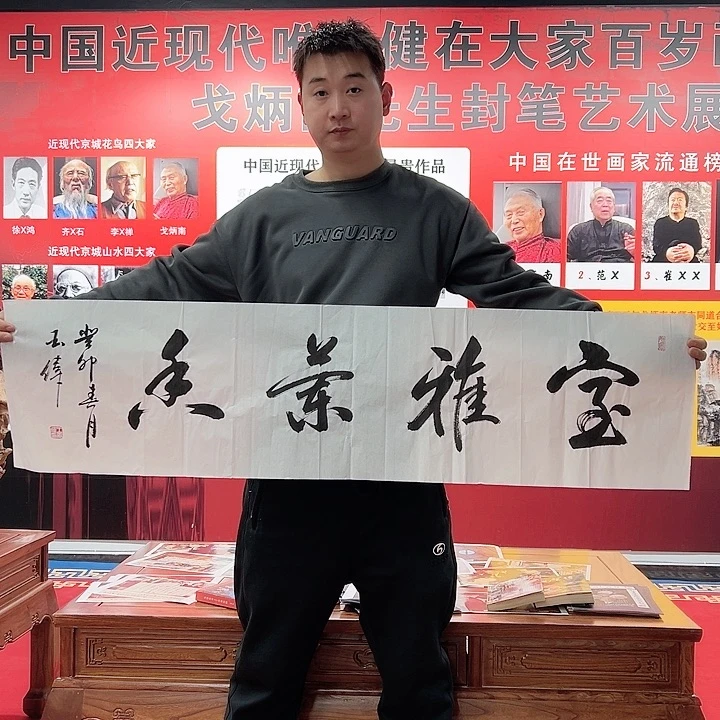 中国近现代唯 健在大家百岁
戈炳 先生封笔艺术展
近现代京城花鸟四大家
徐X鸿
齐X石
李X禅
戈炳南
近现代京城山水四大家
中国近现代 贵作品
中国在世画家流通榜
南
2、范X
3、崔XX
VANGUARD
室雅兰香
癸卯春月
玉伟